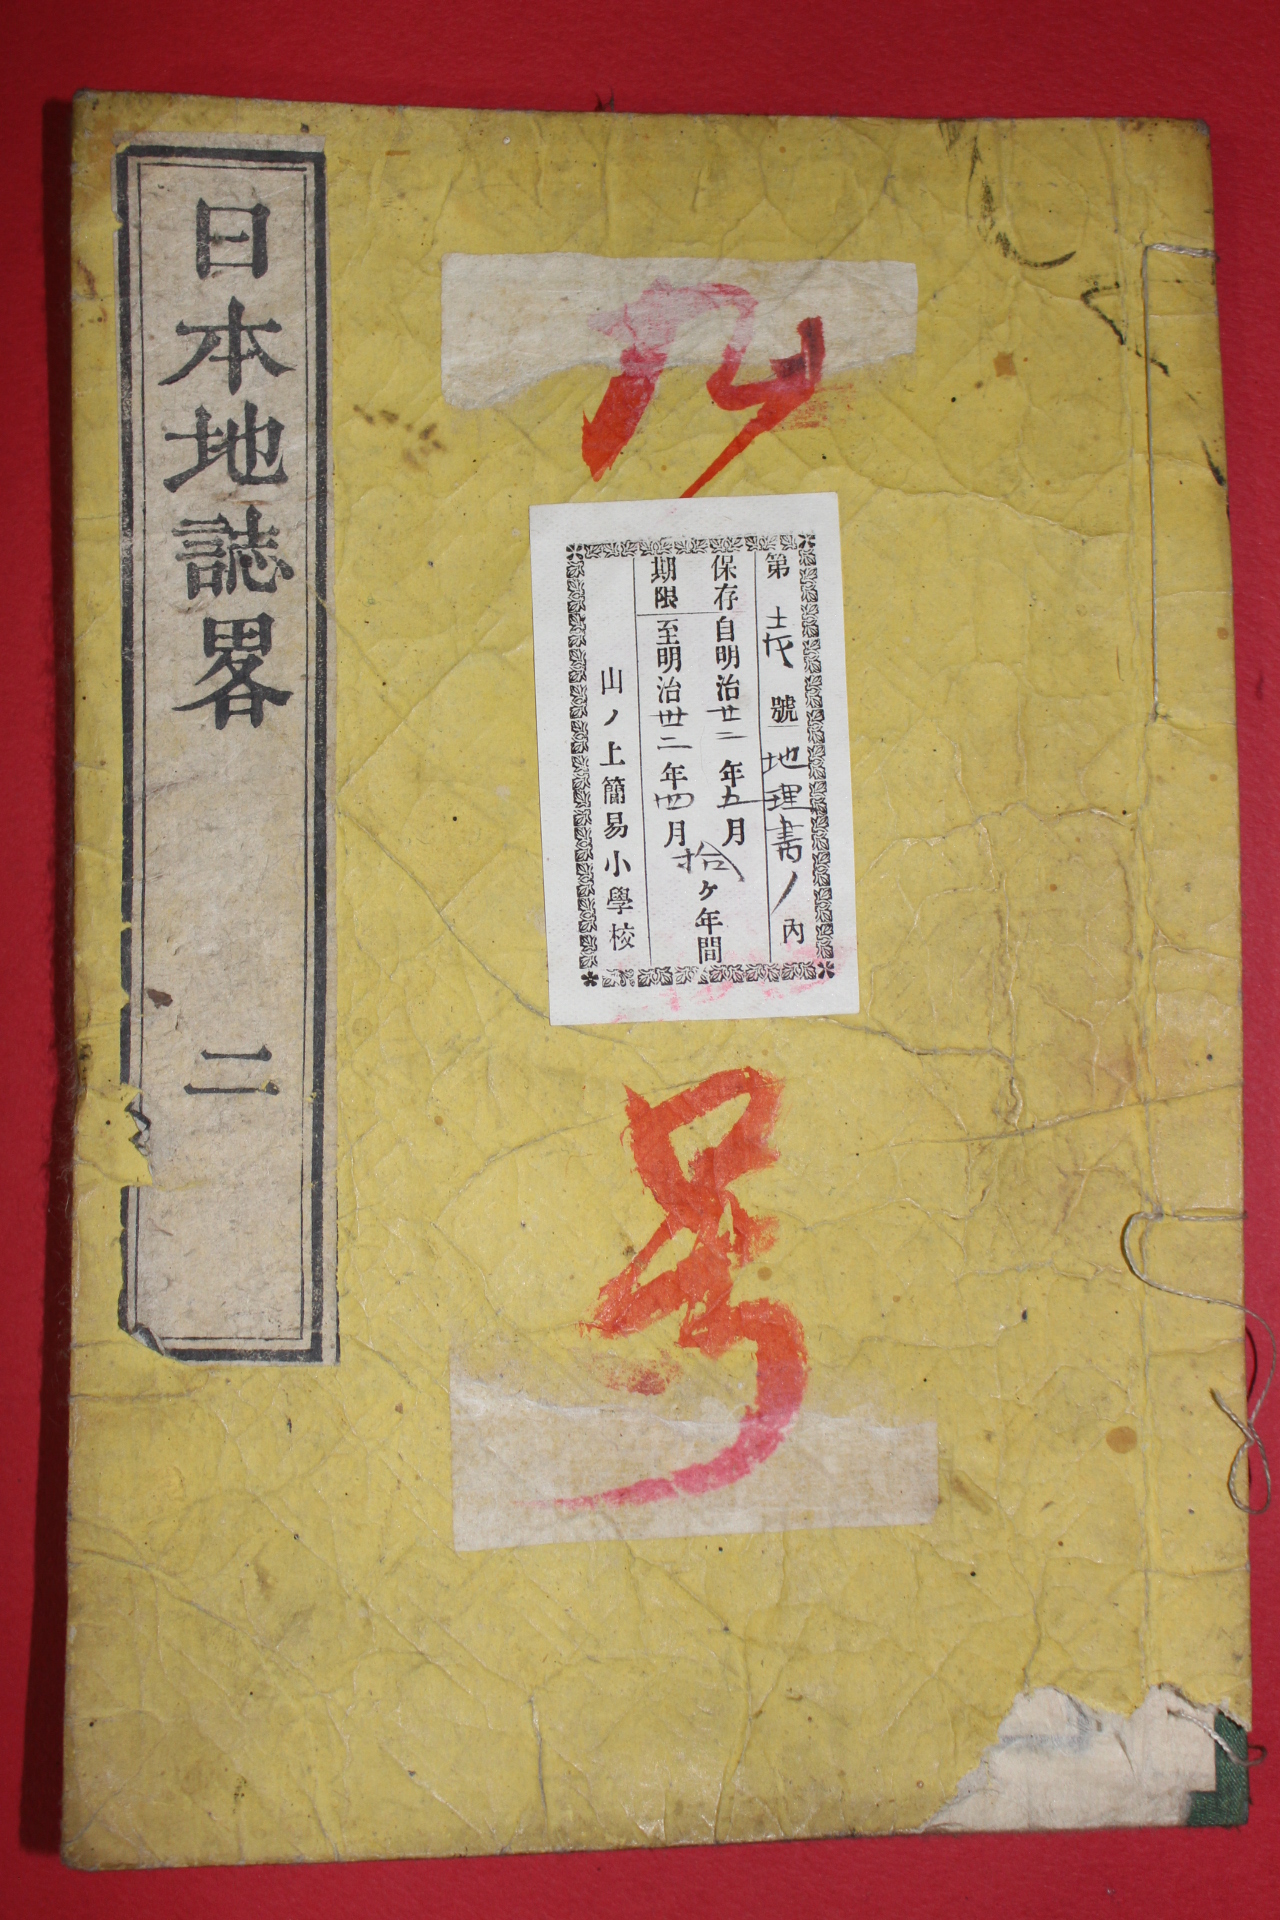 日本地誌畧 二
第 号
第 号 地理書ノ内
保存期限
自明治廿二年五月
至明治卅二年四月
拾ヶ年間
山ノ上簡易小學校